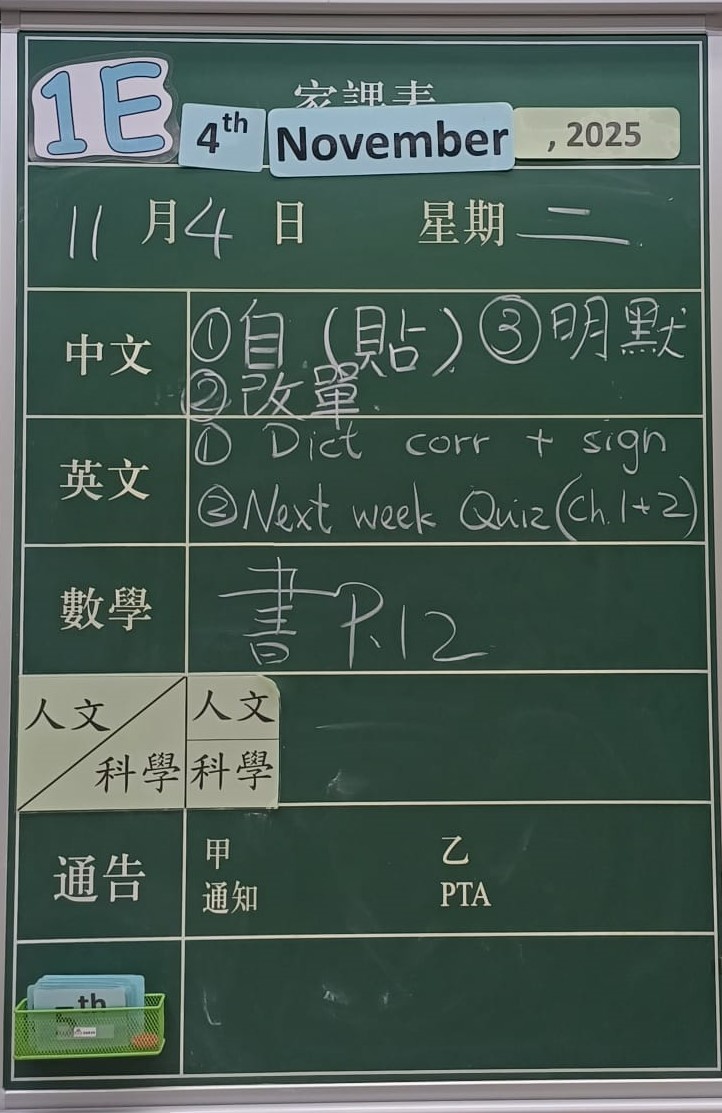 1E
家課表
4th November , 2025
11 月 4 日 星期 二
中文
①自(貼) ③明默
②改單
英文
① Dict corr + sign
②Next week Quiz (Ch. 1+2)
數學
書 P.12
人文
科學
人文
科學
通告
甲 乙
通知 PTA
th